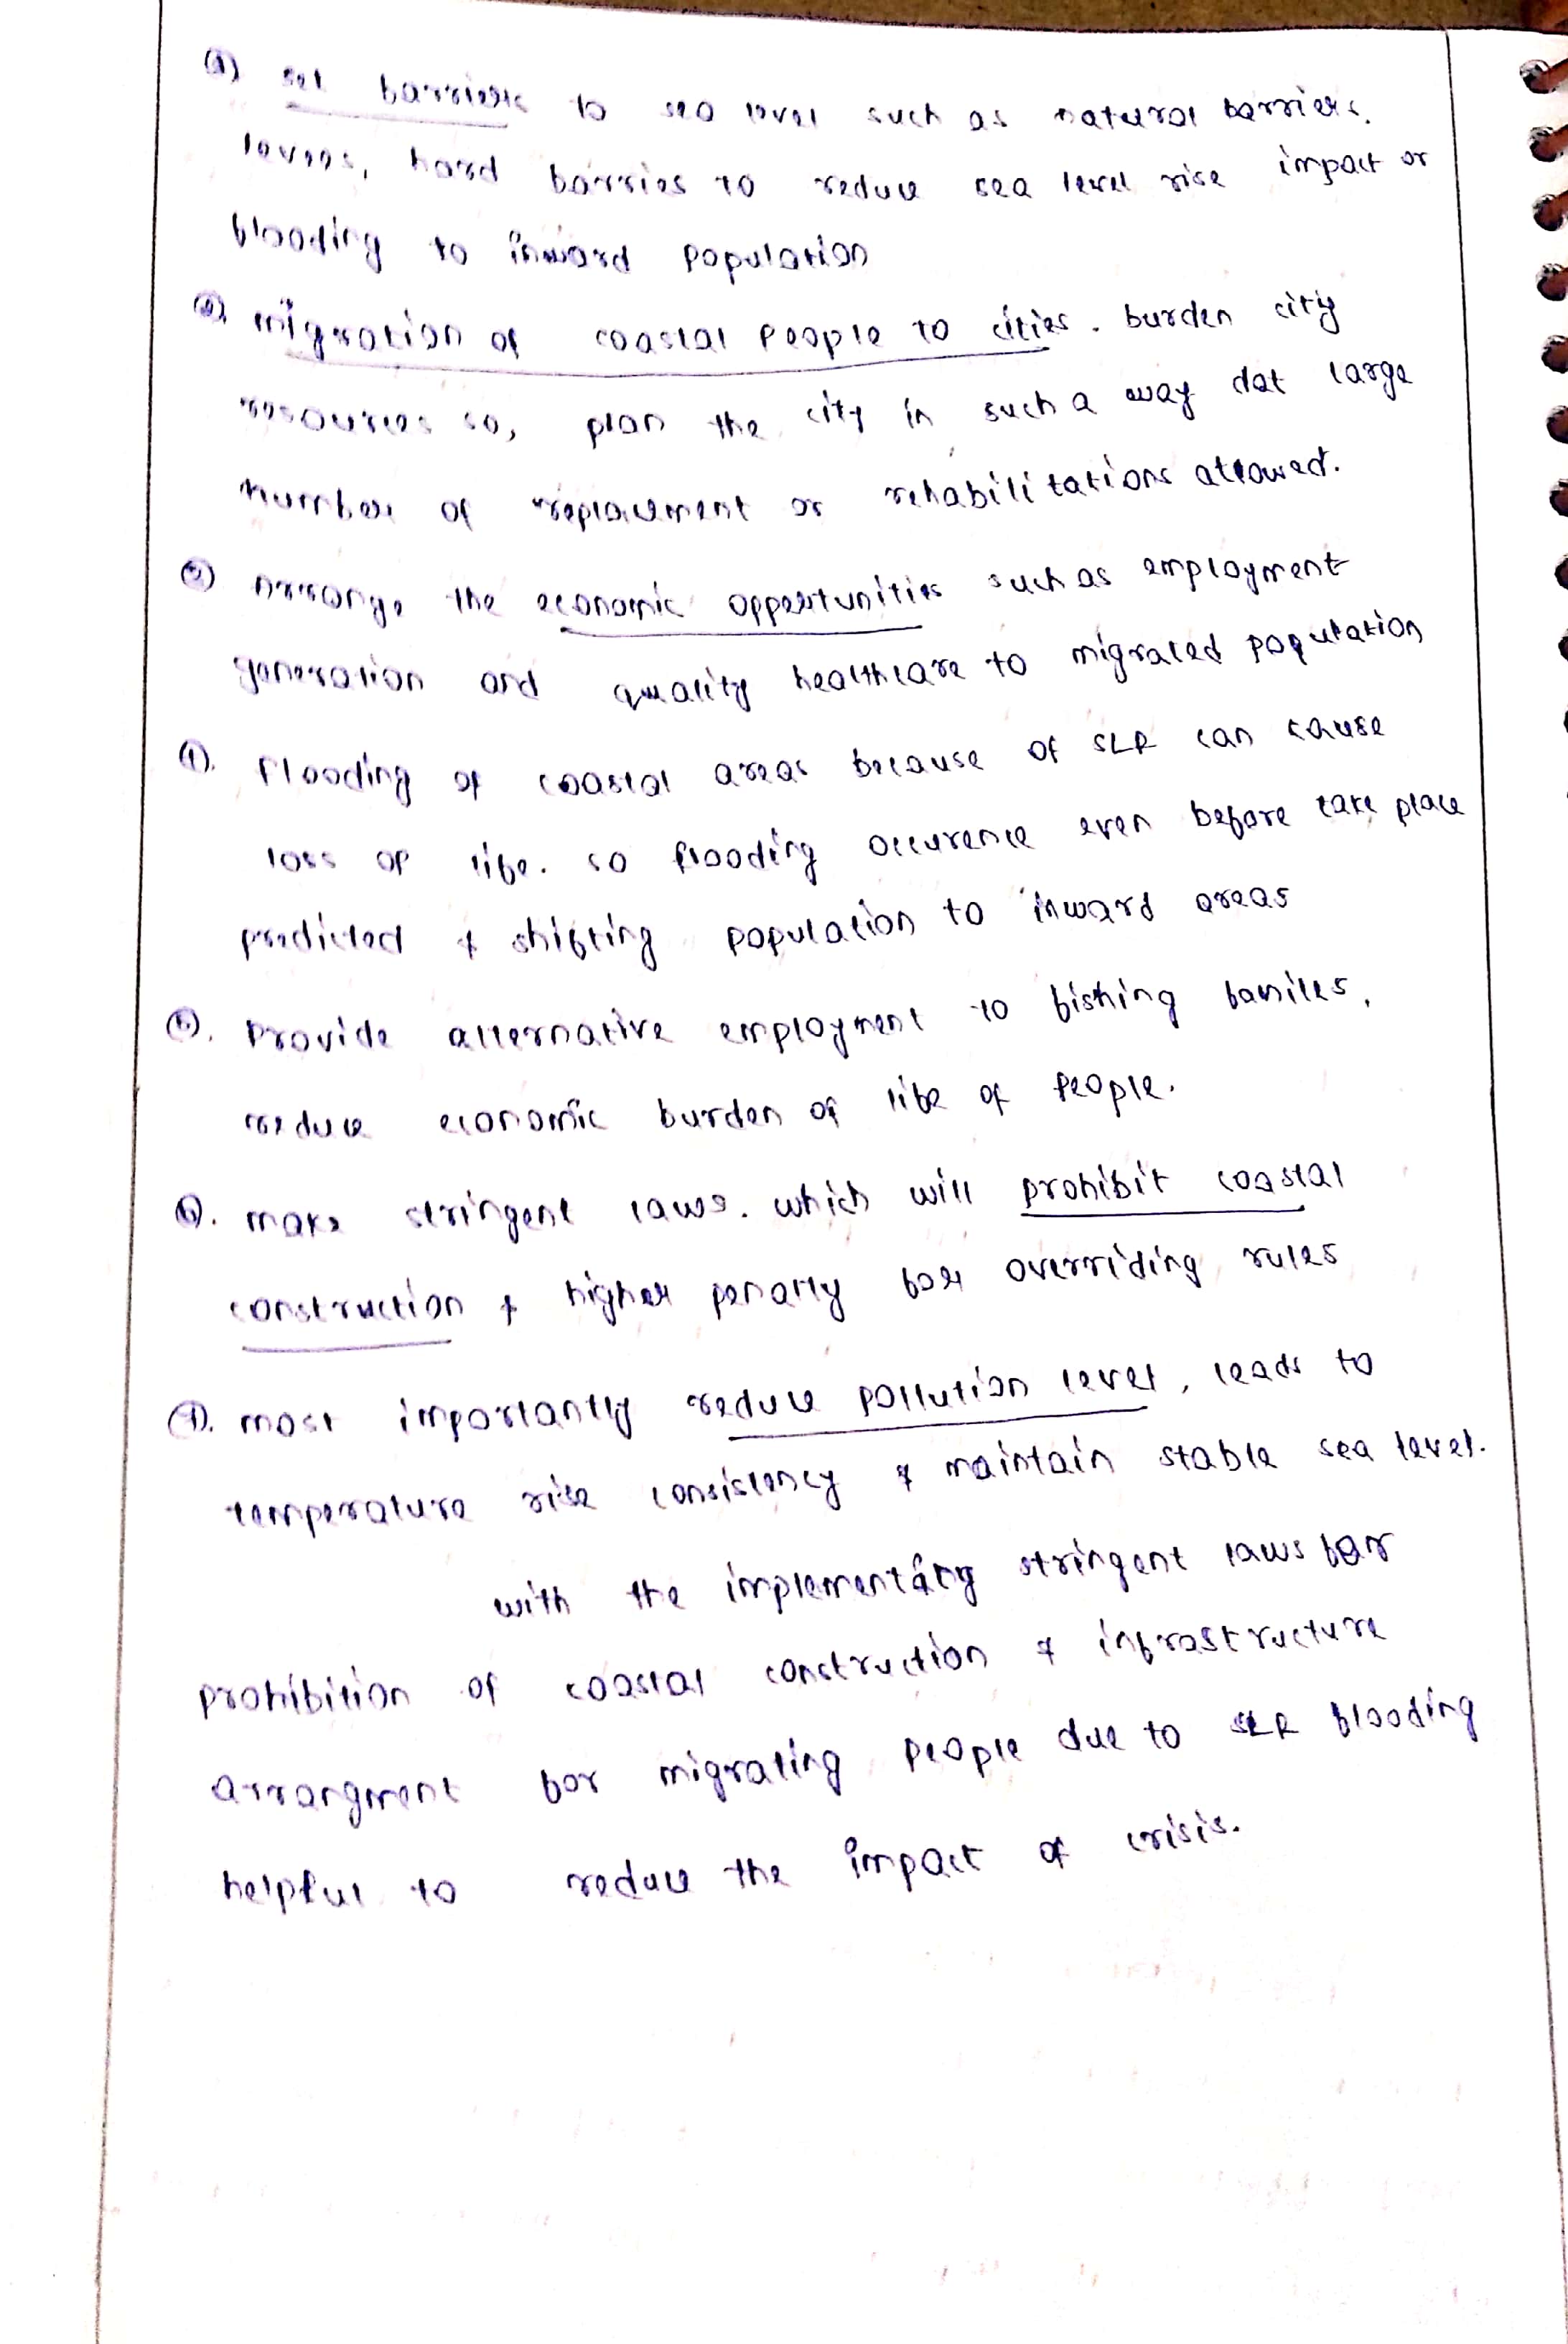 (1) set barriers to sea level such as natural barriers,
levees, hard barries to reduce sea level rise impact or
flooding to inward population
(2) migration of coastal people to cities. burden city
resources so, plan the city in such a way dat large
number of replacement or rehabilitations allowed.
(3) Arrange the economic opportunities such as employment
generation and quality healthcare to migrated population
(4). Flooding of coastal areas because of SLR can cause
loss of life. so flooding occurence even before take place
predicted & shifting population to inward areas
(5). Provide alternative employment to fishing families,
reduce economic burden of life of people.
(6). make stringent laws. which will prohibit coastal
construction & higher penalty for overriding rules
(7). most importantly reduce pollution level, leads to
temperature rise consistency & maintain stable sea level.
with the implementing stringent laws for
prohibition of coastal construction & infrastructure
arrangment for migrating people due to SLR flooding
helpful to reduce the impact of crisis.